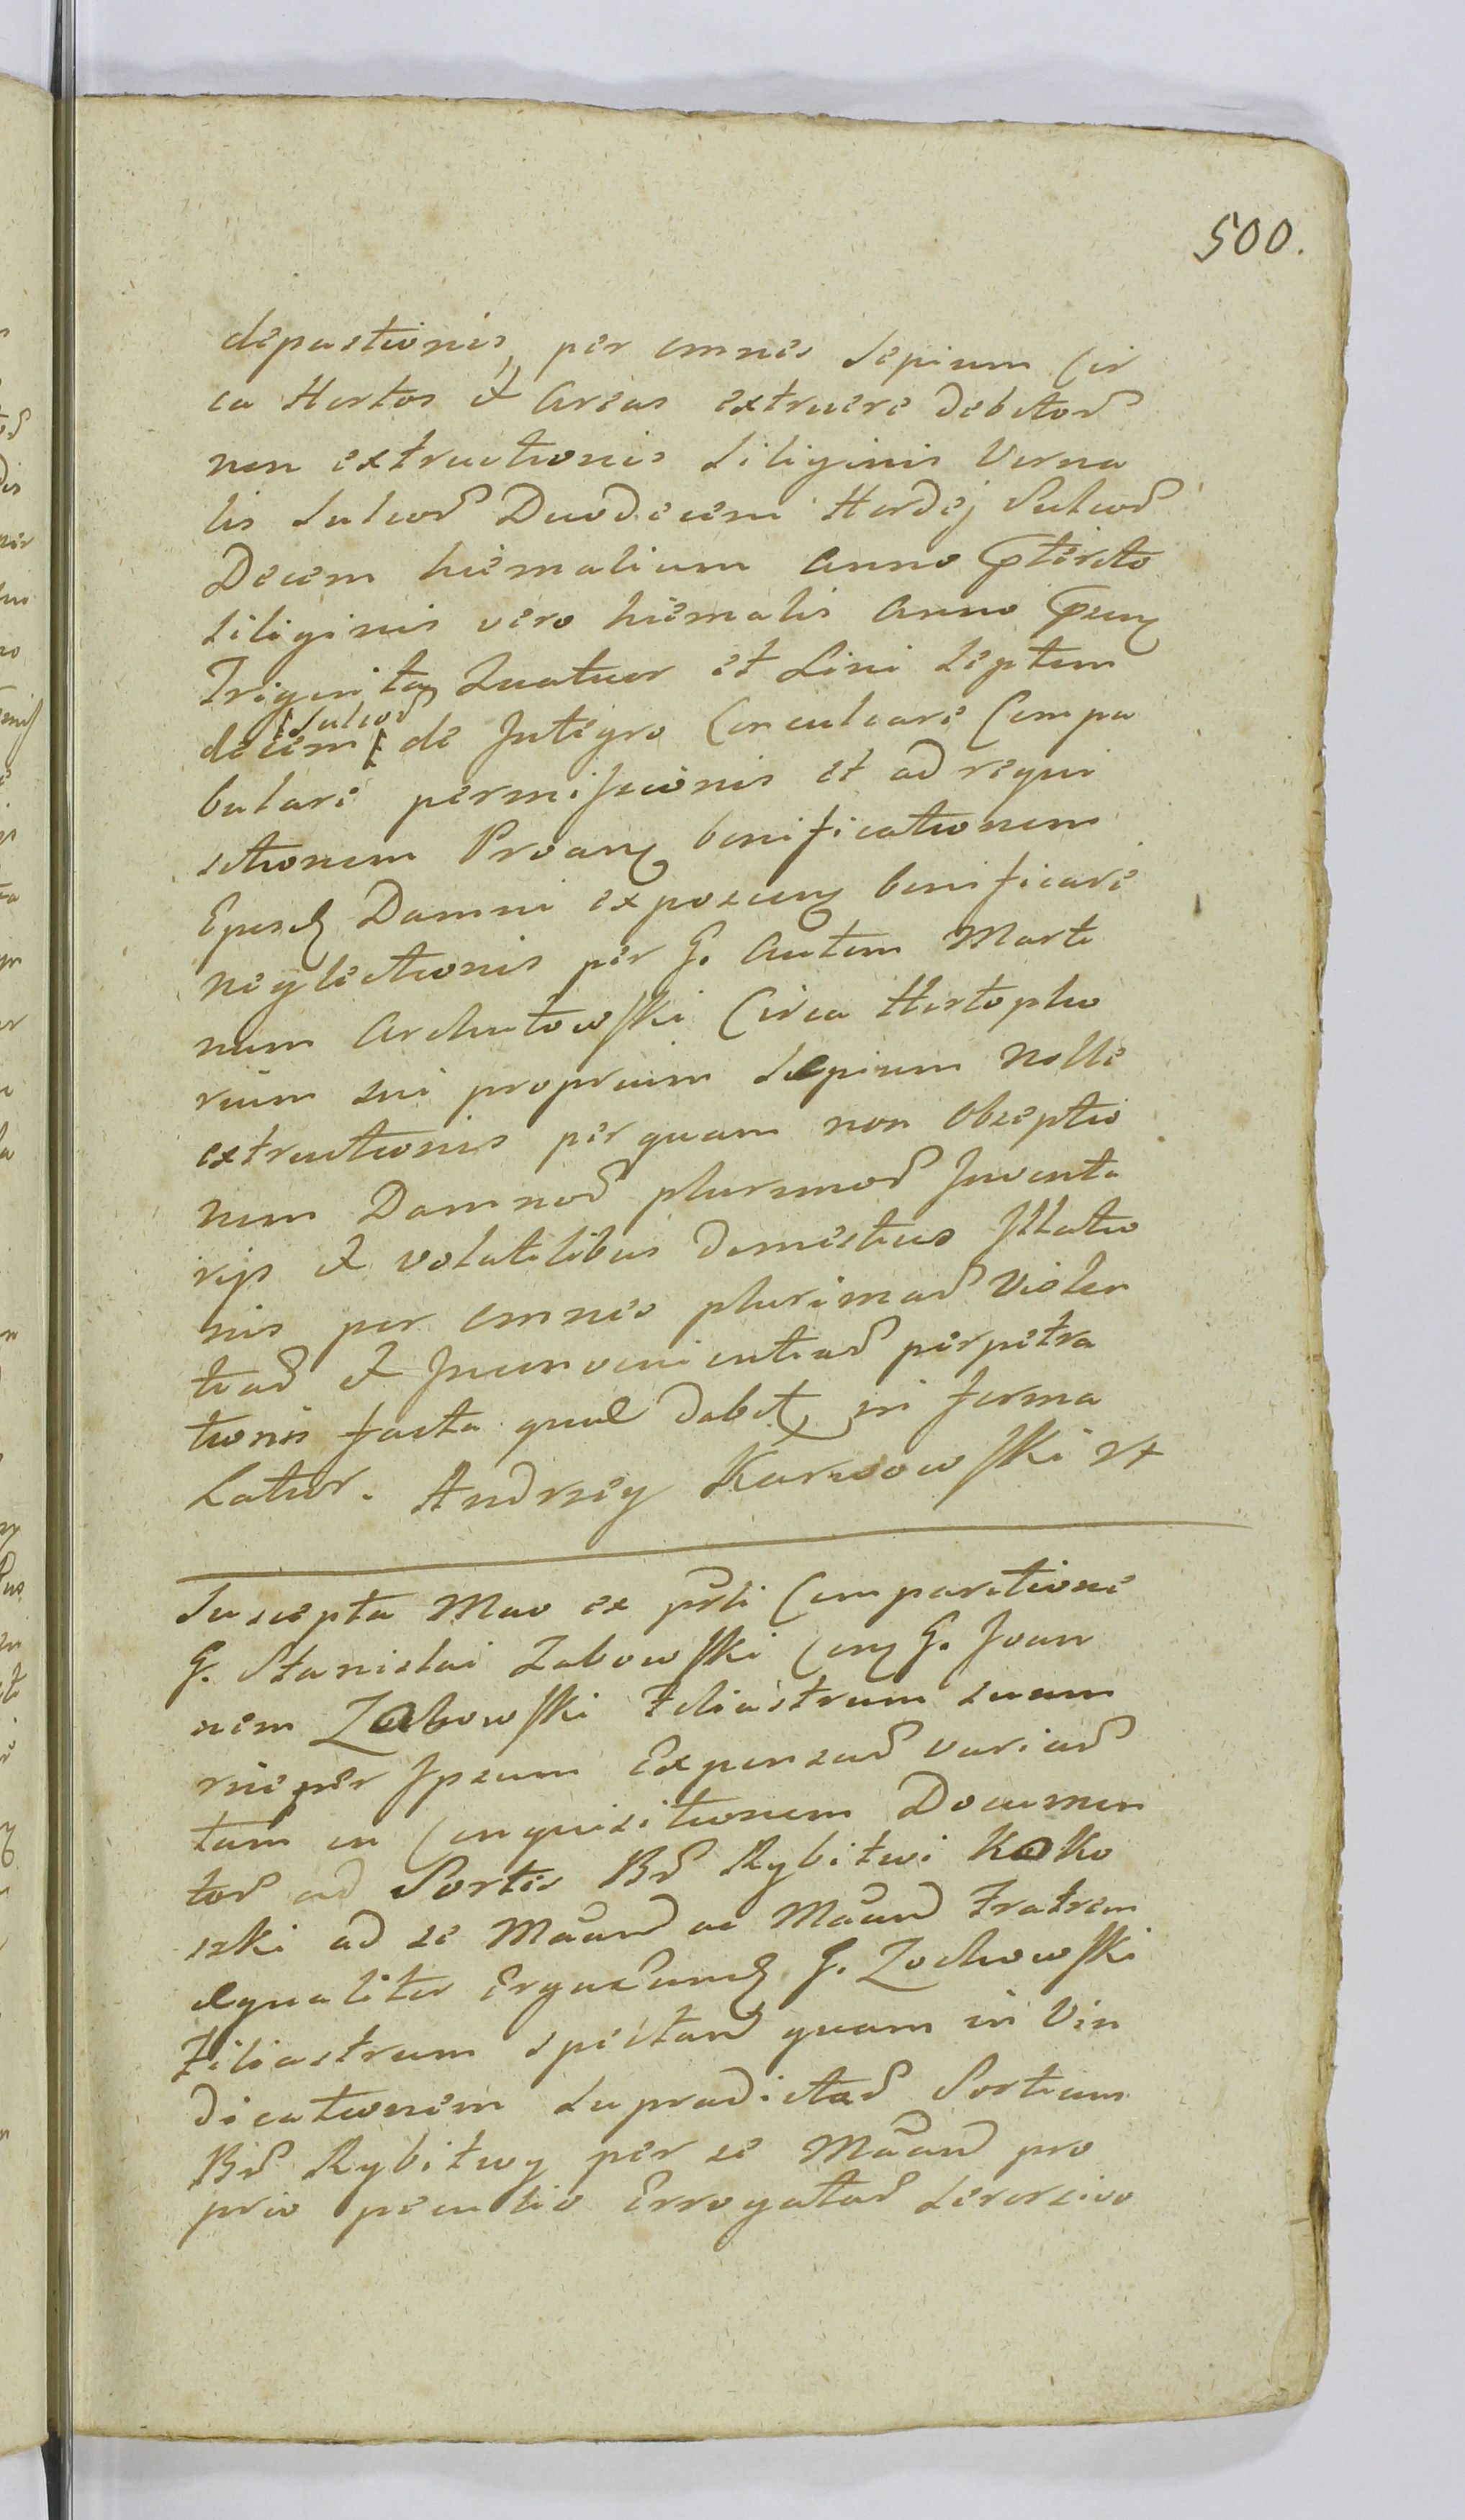 500.
depastionis, per omnes Sepium Cir
ca Hortos et Areas extruere debitoꝝ
non extructionis Siliginis Verna
lis Sulcoꝝ Duodecem Hordej Sulcoꝝ
Decem hiemalium Anno Pterito
Siliginis vero hiemalis Anno
Triginta Quatuor et Lini Septem
Sulcoꝝ
decem de Integro Conculcare Compa
bulare permissionis et ad requi
sitionem bonificationem
Damni bonificare
neglectionis per G. autem Marti
num Archutowski Circa Hortopho
rium sui proprium Sepium nolle
extructionis per quam non Obseptio
nem Damnoꝝ plurimoꝝ Juventa
rijs et volatilibus domesticis Illatio
nis per omnes plurimaꝝ Violen
tiaꝝ et Inconvenientiaꝝ perpetra
tionis facta quae dabit in forma
Latior. Andrzey Karwowski

Suscepta Mao ex pñti Comparitione
G. Stanislai Zabowski G. Joan
nem Zabowski Filiastrum suum
per Ipsum Expensaꝝ variaꝝ
tam in Conquisitionem Documen
toꝝ ad Sortes Bꝝ Rybitwi Koko
szki ad se Mãand ac Mãand Fratrem
aequaliter G. Zochowski
Filiastrum spectand quam in Vin
dicationem Supradictaꝝ Sortium
Bꝝ Rybitwy per se Mãand pro
prio peculio Errogataꝝ